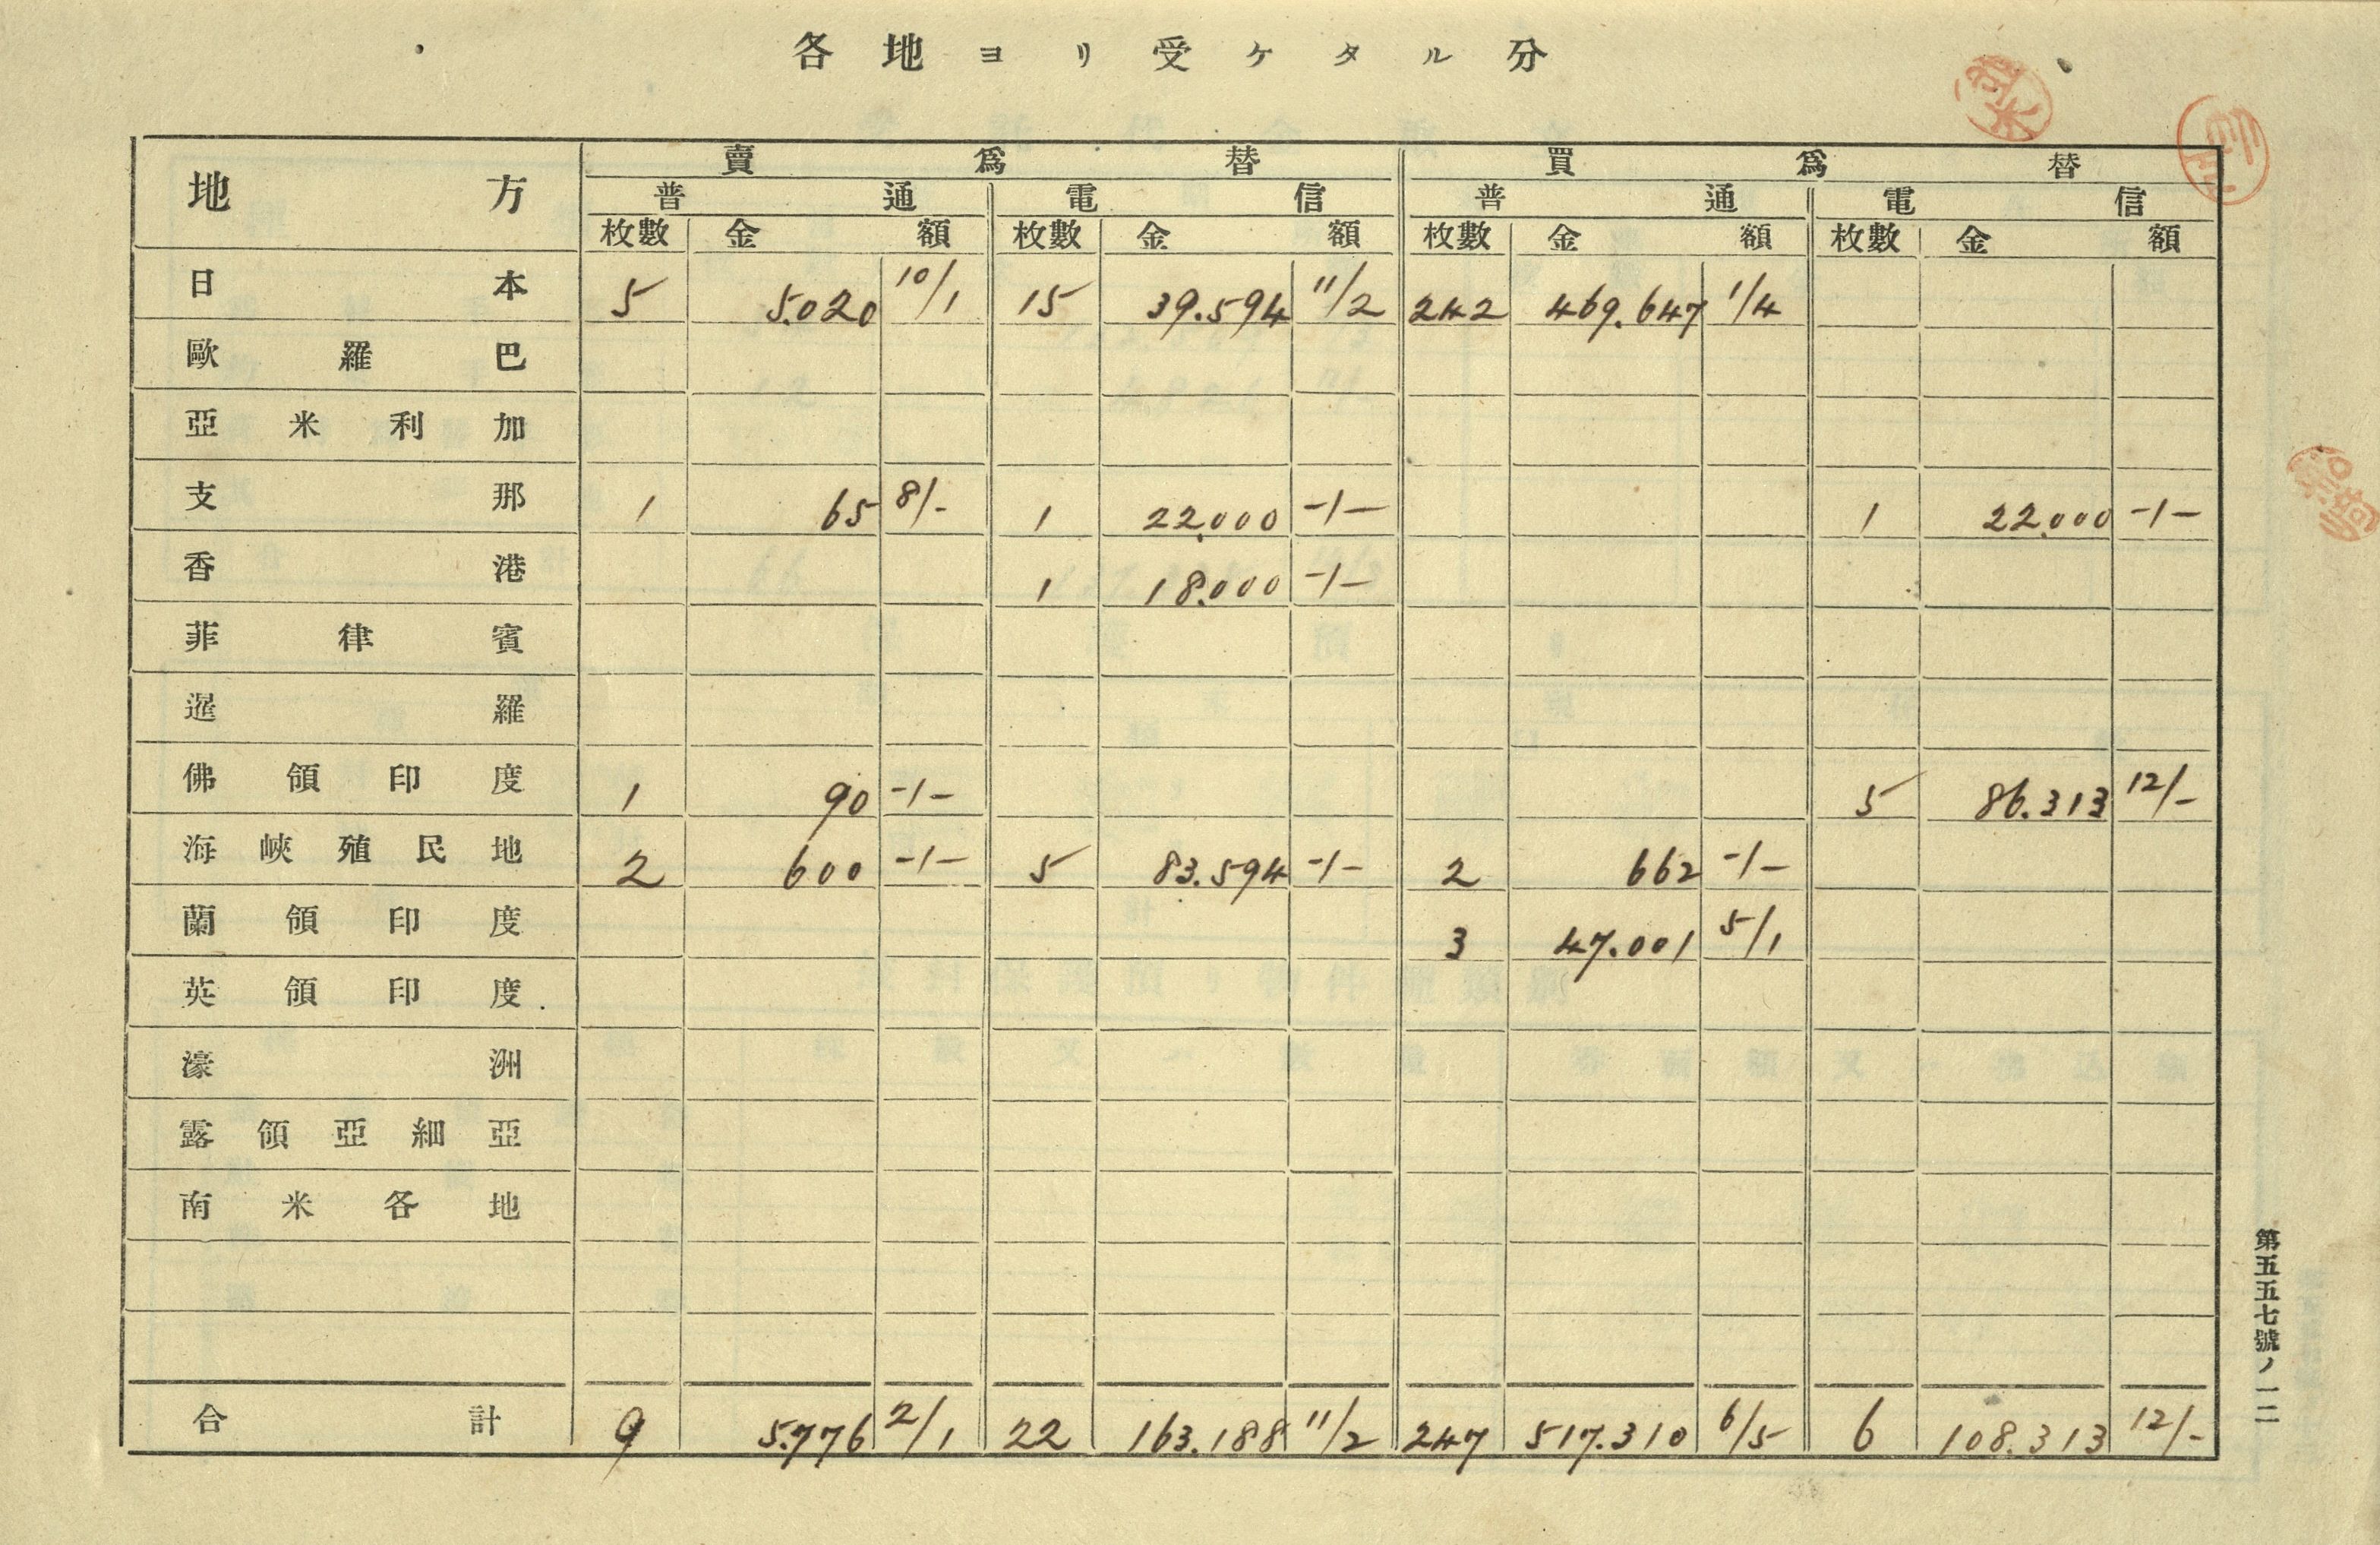 各地ヨリ受ケタル分
地方 賣爲替 買爲替
普通 電信 普通 電信
枚數 金額 枚數 金額 枚數 金額 枚數 金額
日本 5 5.020 10/1 15 39.594 11/2 242 469.647 1/4
歐羅巴
亞米利加
支那 1 65 8/- 1 22.000 -/- 1 22.000 -/-
香港 1 18.000 -/-
菲律賓
暹羅
佛領印度 1 90 -/- 5 86.313 12/-
海峽殖民地 2 600 -/- 5 83.594 -/- 2 662 -/-
蘭領印度 3 47.001 5/1
英領印度
濠洲
露領亞細亞
南米各地
合計 9 5.776 2/1 22 163.188 11/2 247 517.310 6/5 6 108.313 12/-
第五五七號ノ一二